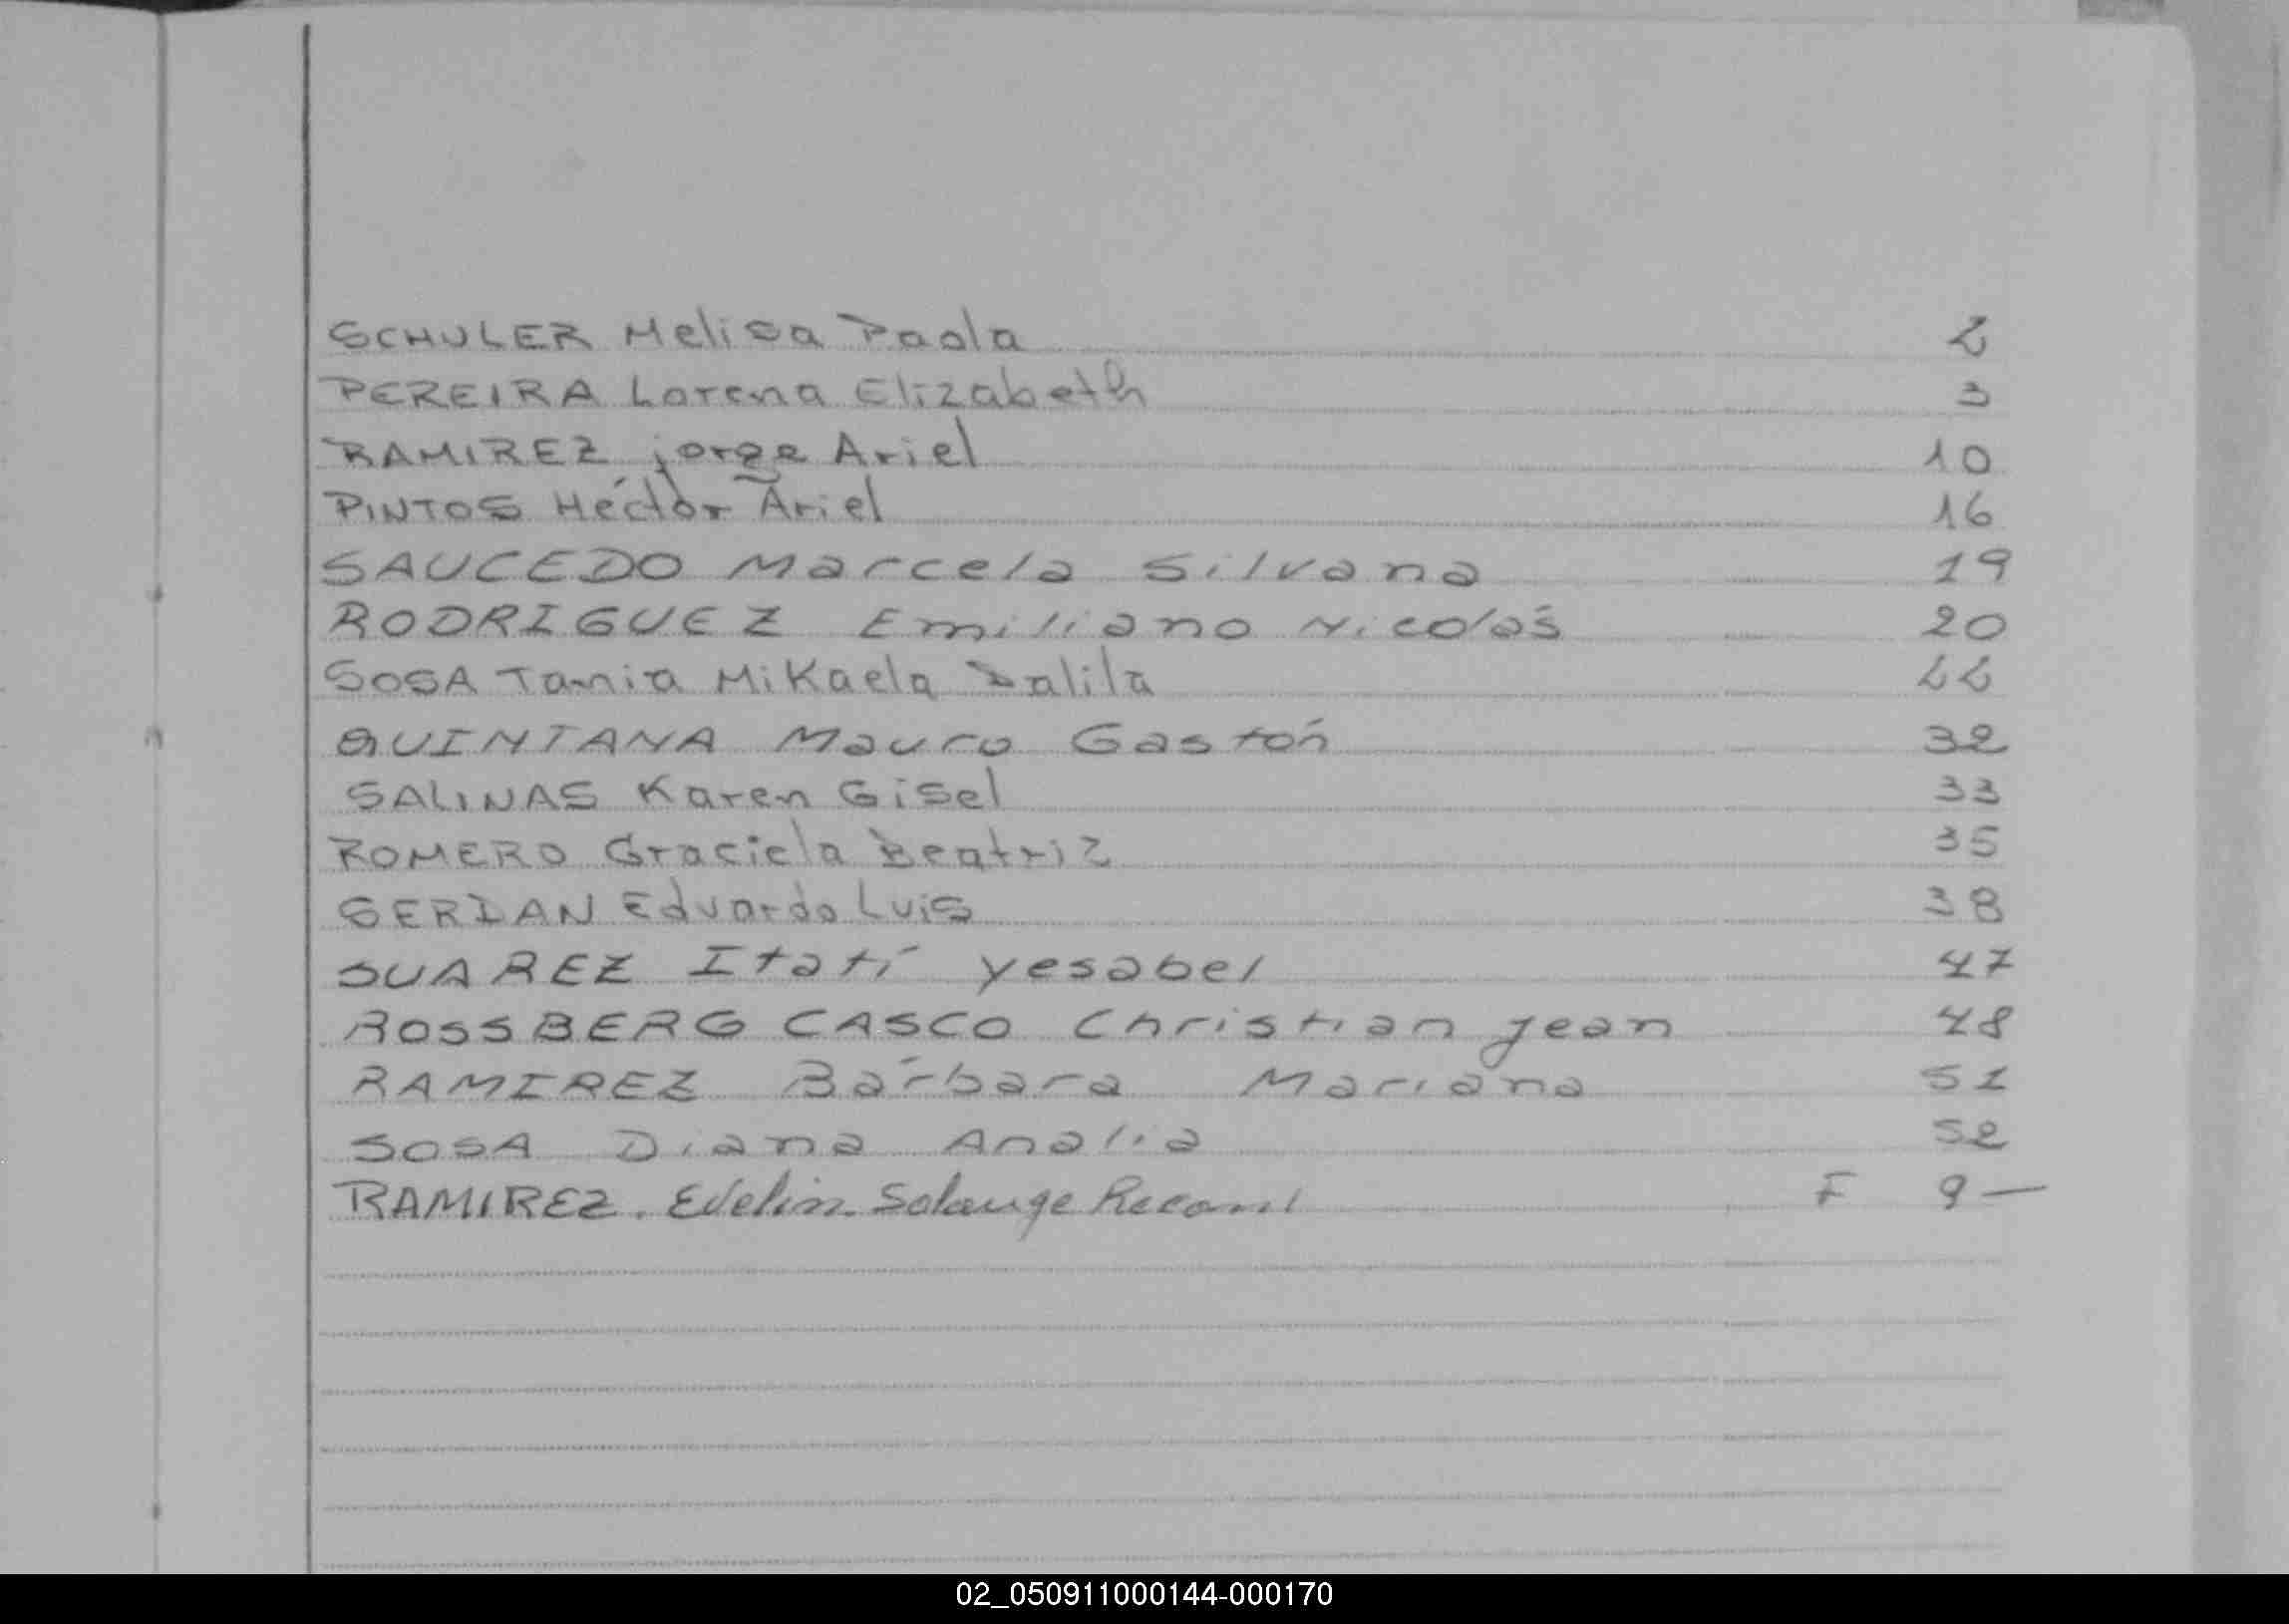 SCHULER Melisa Paola 2
PEREIRA Lorena Elizabeth 3
RAMIREZ jorge Ariel 10
PINTOS Héctor Ariel 16
SAUCEDO Marcela Silvana 19
RODRIGUEZ Emiliano Nicolás 20
SOSA Tania Mikaela Dalila 22
QUINTANA Mauro Gastón 32
SALINAS Karen Gisel 33
ROMERO Graciela Beatriz 35
SERDAN Eduardo Luis 38
SUAREZ Itatí yesabel 47
ROSSBERG CASCO Christian jean 48
RAMIREZ Bárbara Mariana 51
SOSA Diana Analia 52
RAMIREZ. Evelin. Solange F 9 —
02_050911000144-000170